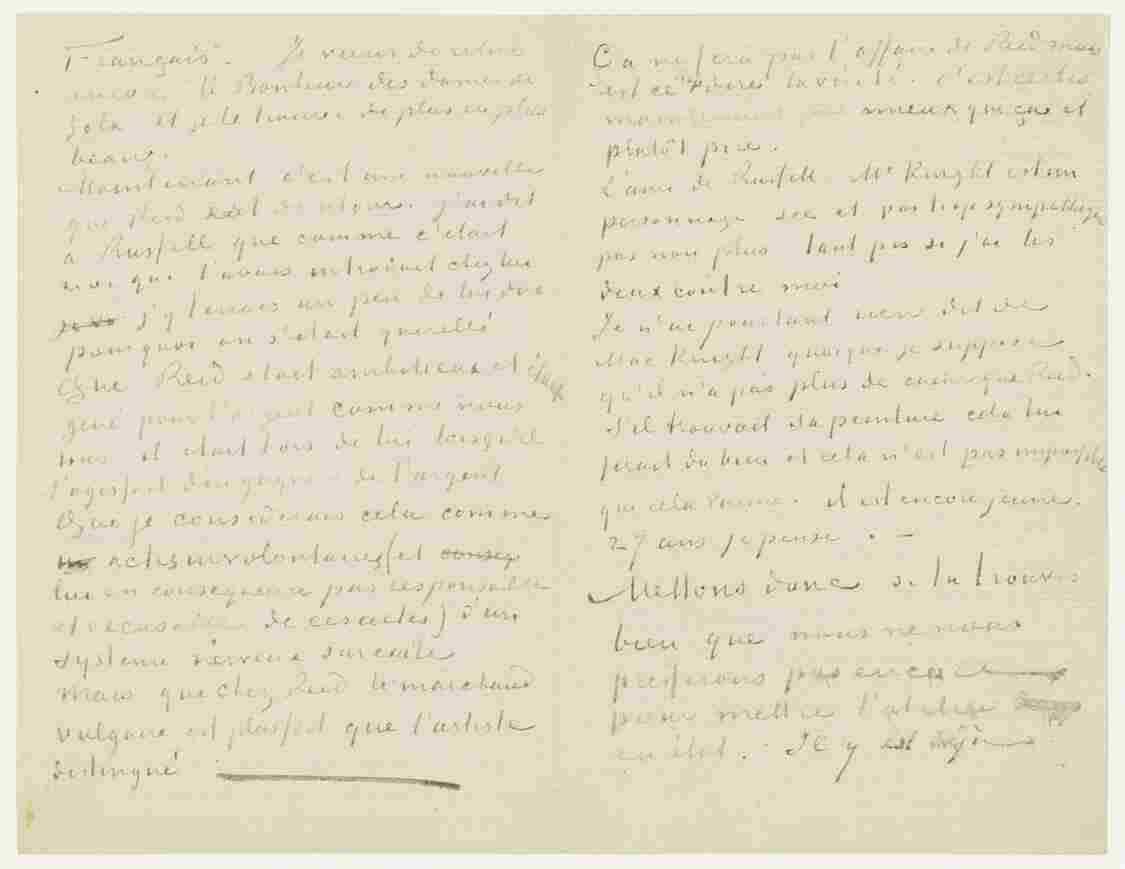 Français. Je viens de relire
encore le Bonheur des dames de
Zola et je le trouve de plus en plus
beau.
Maintenant c'est une nouvelle
que Reid est de retour. j'ai dit
à Russell que comme c'était
moi qui l'avais introduit chez lui
j'y tenais un peu de lui dire
pourquoi on s'était querellé
Que Reid était ambitieux et étant
gêné pour l'argent comme nous
tous il était hors de lui lorsqu'il
s'agissait de gagner de l'argent
Que je considerais cela comme
actes involontaires (et
lui en consequence pas responsable
et excusable de ces actes) d'un
système nerveux surexcité
Mais que chez Reid le marchand
vulgaire est plus fort que l'artiste
distingué
Ca ne fera pas l'affaire de Reid mais
est ce la vérité. c'est certes
maintenant pas mieux que ça et
plutôt pire.
L'ami de Russell Mc Knight est un
personnage sec et pas trop sympathique
pas non plus tant pis si j'ai les
deux contre moi
Je n'ai pourtant rien dit de
Mac Knight quoique je suppose
qu'il n'a pas plus de coeur que Reid.
S'il trouvait sa peinture cela lui
ferait du bien et cela n'est pas impossible
que cela vienne. il est encore jeune.
27 ans je pense. –
Mettons donc si tu trouves
bien que nous ne nous
presserons pas encore
pour mettre l'atelier
en état. Il y est déjà